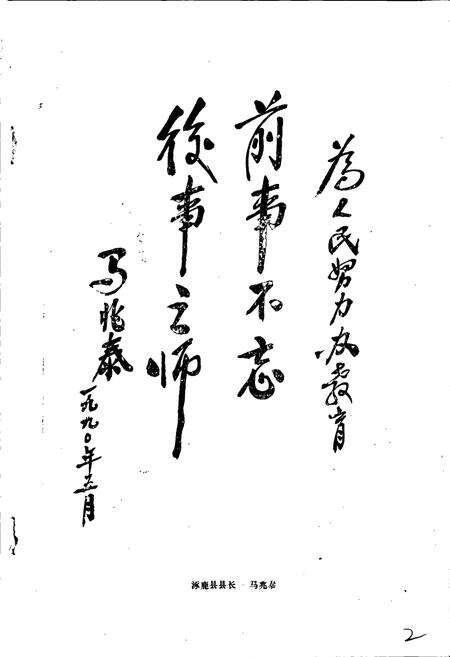 为人民努力办教育
前事不忘
後事之师
马兆泰
一九九〇年三月
涿鹿县县长 马兆泰
2